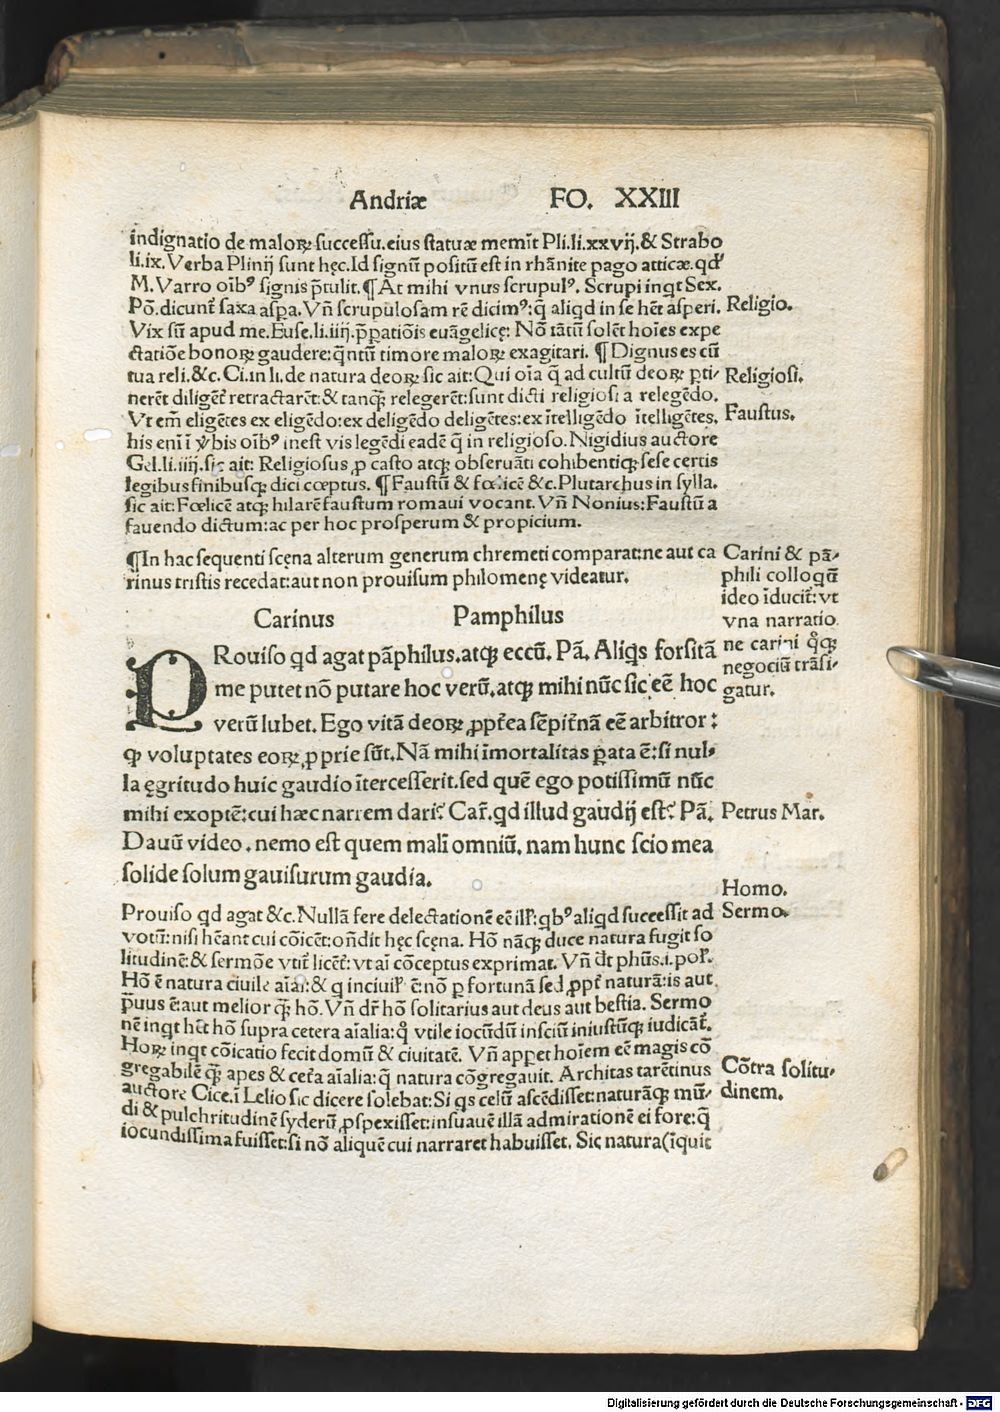 Andriæ FO. XXIII
indignatio de maloꝝ successu. eius statuæ memīt Pli. li. xxvij. & Strabo
li. ix. Verba Plinij sunt hęc. Id signū positū est in rhānite pago atticæ. qd'
M. Varro oībꝰ signis p̄tulit. ¶ At mihi vnus scrupulꝰ. Scrupi inqt Sex.
Pō. dicunt̄ saxa aspa. Vn̄ scrupulosam rē dicimꝰ: q̄ aliqd in se hēt asperi.
Vix sū apud me. Euse. li. iiij. p̄patiōis euāgelicę: Nō tātū solēt hoīes expe
ctatiōe bonoꝝ gaudere: q̄ntū timore maloꝝ exagitari. ¶ Dignus es cū
tua reli. &c. Ci. in li. de natura deoꝝ sic ait: Qui oīa q̄ ad cultū deoꝝ ꝑti-
nerēt diligēt̄ retractarēt: & tanqꝫ relegerēt: sunt dicti religiosi a relegēdo.
Vt em̄ eligētes ex eligēdo: ex deligēdo deligētes: ex ītelligēdo ītelligētes.
his enī ī v̓bis oībꝰ inest vis legēdi eadē q̄ in religioso. Nigidius auctore
Gel. li. iiij. sic ait: Religiosus ꝓ casto atqꝫ obseruāti cohibentiqꝫ sese certis
legibus finibusqꝫ dici cœptus. ¶ Faustū & fœlicē &c. Plutarchus in sylla.
sic ait: Fœlicē atqꝫ hilarē faustum romaui vocant. Vn̄ Nonius: Faustū a
fauendo dictum: ac per hoc prosperum & propicium.
Religio.
Religiosi.
Faustus.
¶ In hac sequenti scęna alterum generum chremeti comparat: ne aut ca
rinus tristis recedat: aut non prouisum philomenę videatur.
Carini & pā-
phili colloqū
ideo īducit̄: vt
vna narratio
ne carini q̊qꝫ
negociū trāsi-
gatur.
Carinus Pamphilus
PRouiso qd agat pāphilus. atqꝫ eccū. Pā. Aliqs forsitā
me putet nō putare hoc verū. atqꝫ mihi nūc sic eē hoc
verū lubet. Ego vitā deoꝝ ꝓpt̄ea sēpit̄nā eē arbitror:
ꝙ voluptates eoꝝ ꝓprie sūt. Nā mihi īmortalitas ꝑata ē: si nul-
la ęgritudo huic gaudio ītercesserit. sed quē ego potissimū nūc
mihi exoptē: cui hæc narrem dari? Car̄. qd illud gaudij est? Pā.
Dauū video. nemo est quem mali omniū. nam hunc scio mea
solide solum gauisurum gaudia.
Petrus Mar.
Prouiso qd agat &c. Nullā fere delectationē eē ill': qbꝰ aliqd successit ad
votū: nisi hēant cui cōicēt: on̄dit hęc scęna. Hō nāqꝫ duce natura fugit so
litudinē: & sermōe vtit̄ licēt̄: vt aī cōceptus exprimat. Vn̄ dt̄ phūs. i. pol'.
Hō ē natura ciuile aīal: & q inciuil' ē: nō ꝑ fortunā sed ꝓpt̄ naturā: is aut
p̄uus ē: aut melior qꝫ hō. Vn̄ dr̄ hō solitarius aut deus aut bestia. Sermo
nē inqt hēt hō supra cetera aīalia: q̊ vtile iocūdū insciū iniustūqꝫ iudicāt̄.
Hoꝝ inqt cōicatio fecit domū & ciuitatē. Vn̄ appet hoīem eē magis cō
gregabilē qꝫ apes & cet̄a aīalia: q̄ natura cōgregauit. Architas tarētinus
auctore Cice. ī Lelio sic dicere solebat: Si qs celū ascēdisset: naturāqꝫ mū-
di & pulchritudinē syderū ꝑspexisset: insuauē illā admirationē ei fore: q̄
iocundissima fuisset: si nō aliquē cui narraret habuisset. Sic natura (īquit
Homo.
Sermo.
Cōtra solitu-
dinem.
Digitalisierung gefördert durch die Deutsche Forschungsgemeinschaft - DFG